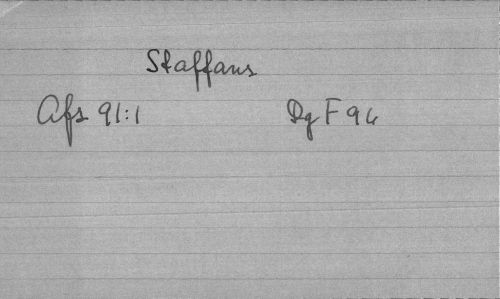 Staffans
Afs 91:1 Dg F 94